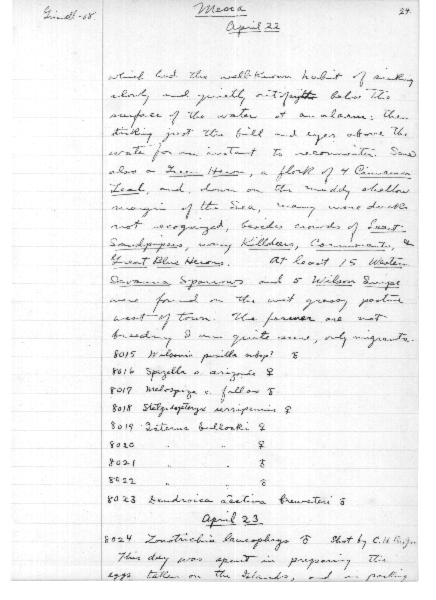 Grinnell-'08.
Mecca
24.
April 22
which had the well-known habit of sinking
slowly and quietly out of sight below the
surface of the water at an alarm; then
sticking just the bill and eyes above the
water for an instant to reconnoiter. Saw
also a Green Heron, a flock of 4 Cinnamon
Teal, and, down on the muddy shallow
margin of the Sea, many more ducks
not recognized, besides crowds of Least
Sandpipers, many Killdeers, Cormorants, &
Great Blue Herons. At least 15 Western
Savanna Sparrows and 5 Wilson Snipe
were found on the wet grassy pasture
west of town. The former are not
breeding I am quite sure, only migrants.
8015 Wilsonia pusilla subsp? ♂
8016 Spizella s. arizonae ♀
8017 Melospiza c. fallax ♂
8018 Stelgidopteryx serripennis ♀
8019 Icterus bullocki ♀
8020 " " ♀
8021 " " ♂
8022 " " ♂
8023 Dendroica aestiva brewsteri ♂
April 23
8024 Zonotrichia leucophrys ♂ Shot by C. H.
This day was spent in preparing the
eggs taken on the Islands, and in packing